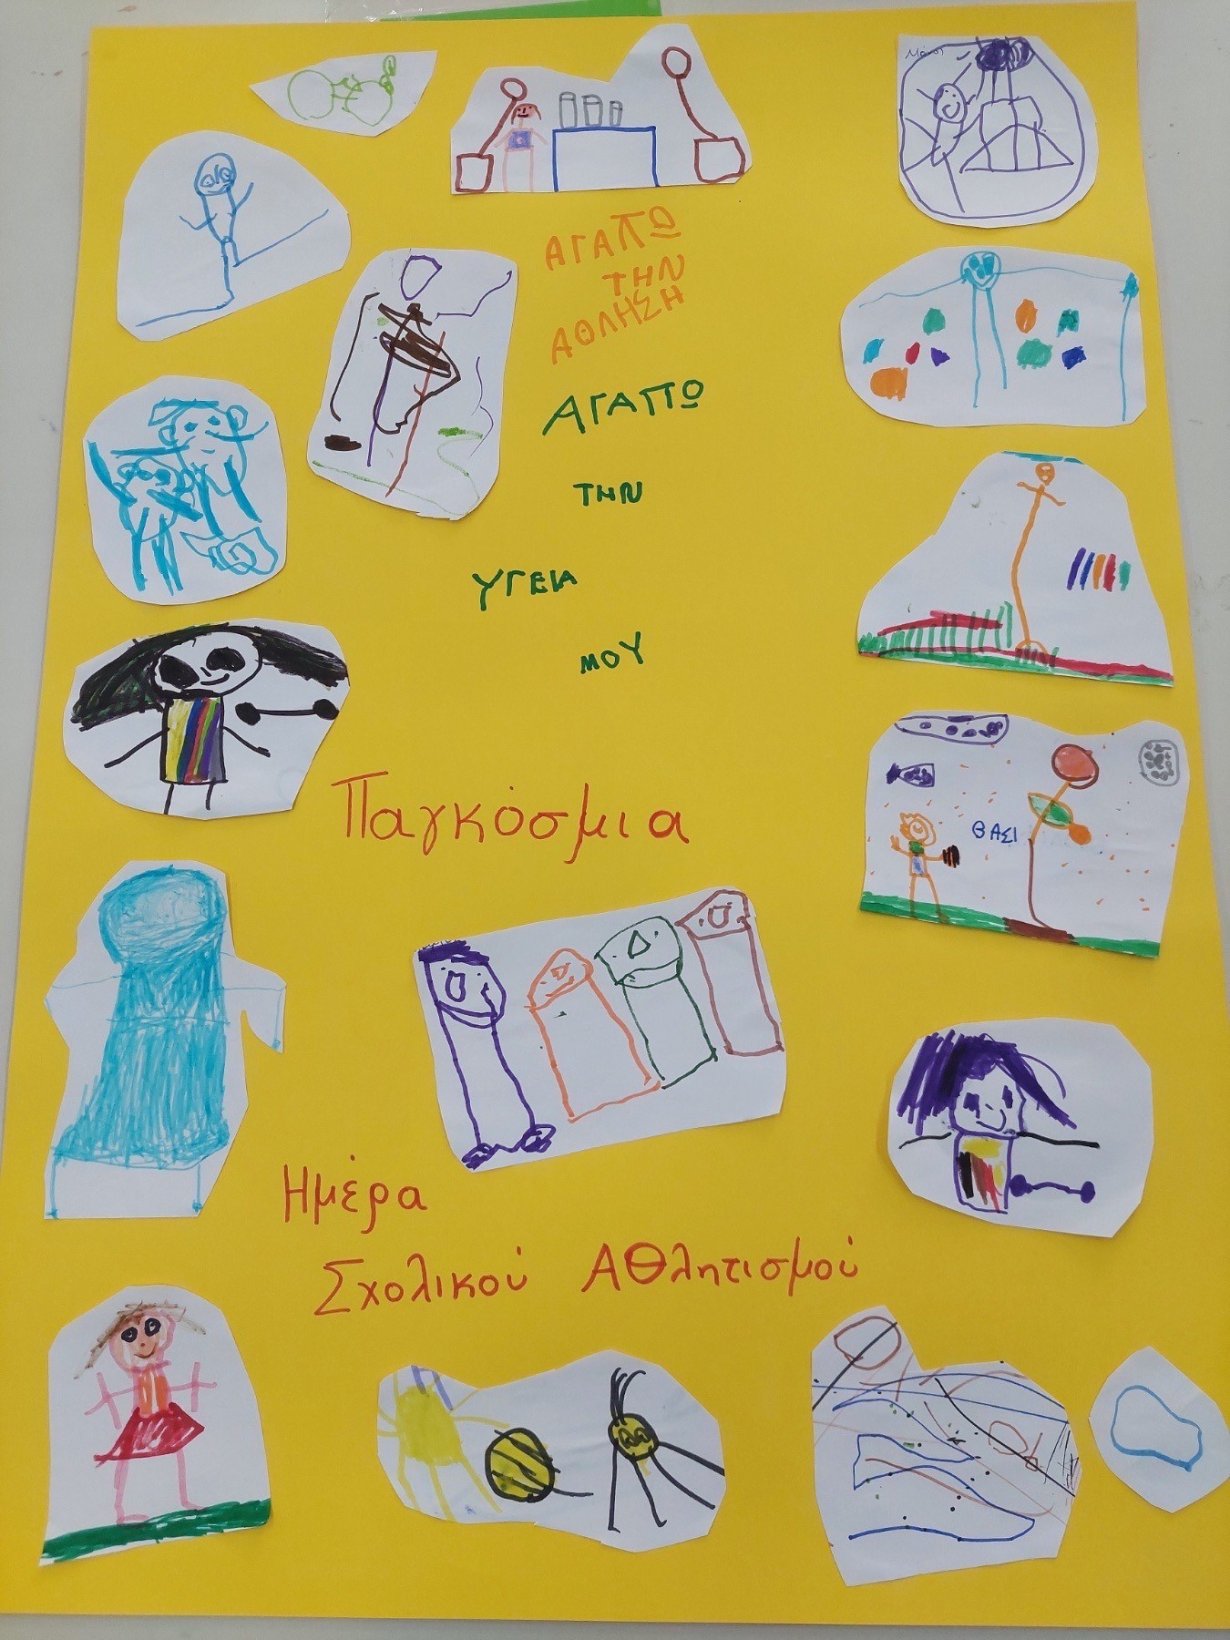 ΑΓΑΠΩ
ΤΗΝ
ΑΘΛΗΣΗ
ΑΓΑΠΩ
ΤΗΝ
ΥΓΕΙΑ
ΜΟΥ
Παγκόσμια
ΒΑΣΙ
Ημέρα
Σχολικού Αθλητισμού